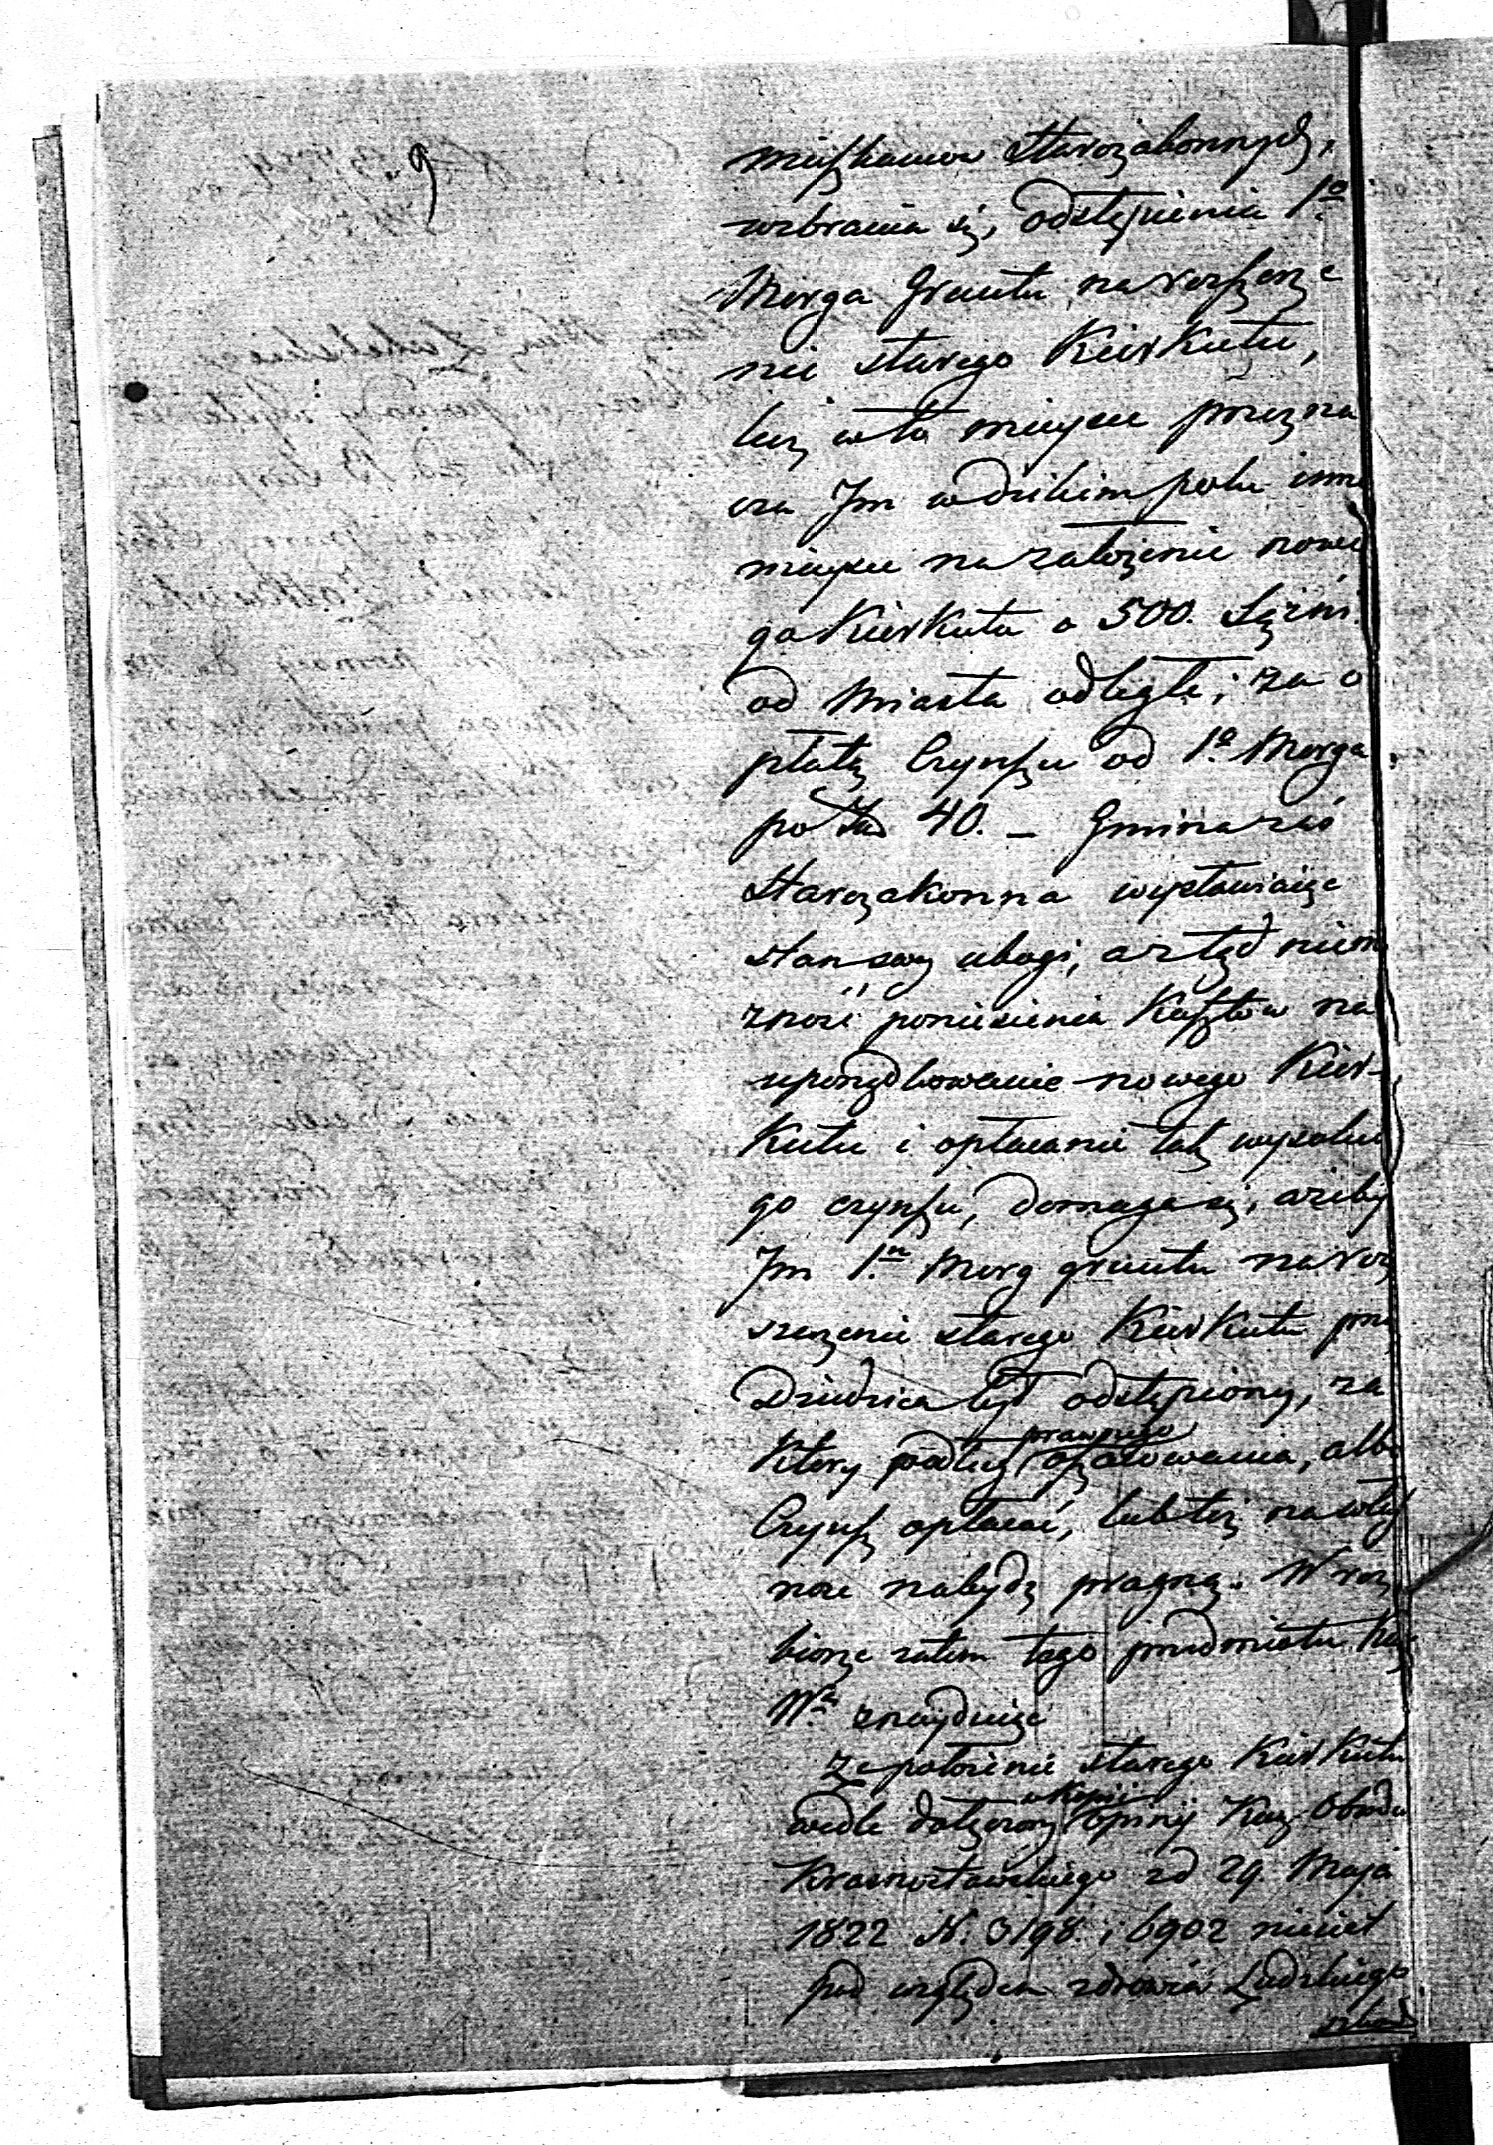 9
mieszkańców Starozakonnych,
wzbrania się, odstąpienia 1º
Morga Gruntu na rozszerze
nie starego Kierkutu,
lecz w to mieysce przezna
cza Jm w dzikim polu inne
mieysce na założenie nowe
go Kierkuta o 500. Sążni
od Miasta odległe, za o
płatą Czynszu od 1º Morga
po Złt 40. – Gmina zaś
Starozakonna wystawiaiąc
stan swoy ubogi, a ztąd niemo
żność poniesienia Kosztów na
uporządkowanie nowego Kier-
Kutu i opłacanie tak wysokie
go czynszu, domaga się, ażeby
Jm 1.n Morg gruntu na roz
szerzenie starego KierKutu przez
Dziedzica był odstąpiony, za
Który podług prawnego oszacowania, albo
Czynsz opłacać, lub też na włas
ność nabydź pragną. W roz
biorze zatem tego przedmiotu Kom:
W.a znayduiąc
że położenie starego KierKutu
wedle dołączoney w Kopii Opinij Kom: Obwodu
Krasnostawskiego zd 29. Maja
1822 N. 3198. i 6902 nie iest
pod względem zdrowia Ludzkiego